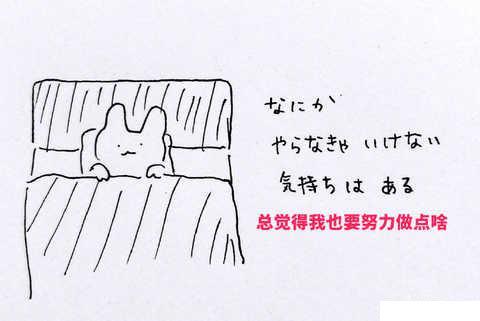 なにか
やらなきゃ いけない
気持ちは ある
总觉得我也要努力做点啥